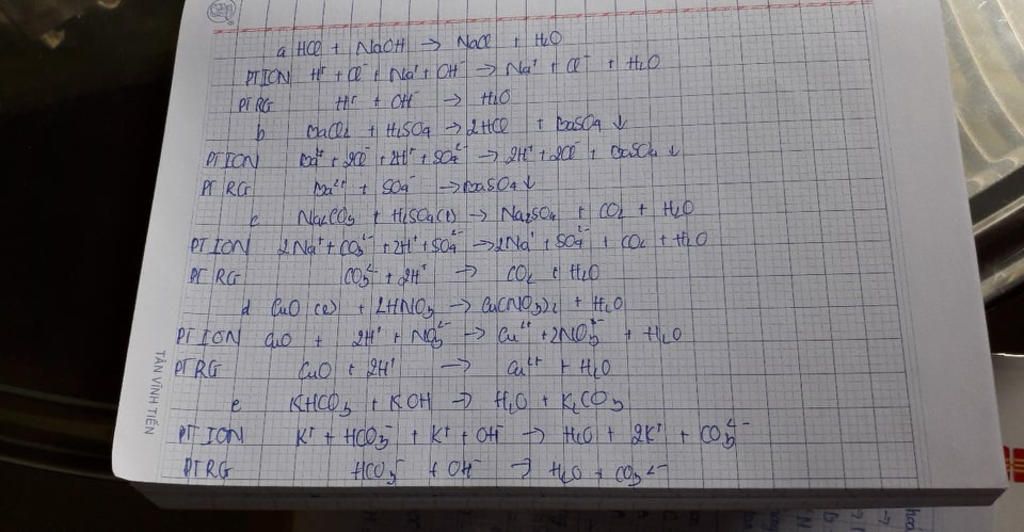 a HCl + NaOH → NaCl + H₂O
PTION H⁺ + Cl⁻ + Na⁺ + OH⁻ → Na⁺ + Cl⁻ + H₂O
PTRG H⁺ + OH⁻ → H₂O
b BaCl₂ + H₂SO₄ → 2HCl + BaSO₄ ↓
PTION Ba²⁺ + 2Cl⁻ + 2H⁺ + SO₄²⁻ → 2H⁺ + 2Cl⁻ + BaSO₄ ↓
PTRG Ba²⁺ + SO₄⁻ → BaSO₄ ↓
c Na₂CO₃ + H₂SO₄ → Na₂SO₄ + CO₂ + H₂O
PTION 2Na⁺ + CO₃²⁻ + 2H⁺ + SO₄²⁻ → 2Na⁺ + SO₄²⁻ + CO₂ + H₂O
PTRG CO₃²⁻ + 2H⁺ → CO₂ + H₂O
d CuO + 2HNO₃ → Cu(NO₃)₂ + H₂O
PTION CuO + 2H⁺ + NO₃²⁻ → Cu²⁺ + 2NO₃⁻ + H₂O
PTRG CuO + 2H⁺ → Cu²⁺ + H₂O
e KHCO₃ + KOH → H₂O + K₂CO₃
PTION K⁺ + HCO₃⁻ + K⁺ + OH⁻ → H₂O + 2K⁺ + CO₃²⁻
PTRG HCO₃⁻ + OH⁻ → H₂O + CO₃²⁻
TÂN VĨNH TIẾN